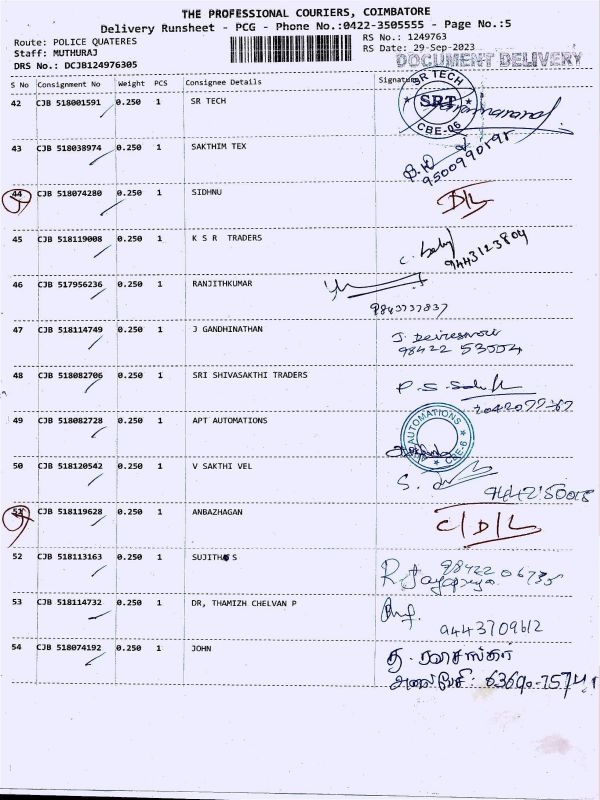 THE PROFESSIONAL COURIERS, COIMBATORE
Delivery Runsheet - PCG - Phone No.:0422-3505555 - Page No.:5
Route: POLICE QUATERES
RS No.: 1249763
Staff: MUTHURAJ
RS Date: 29-Sep-2023
DRS No.: DCJB124976305
DOCUMENT DELIVERY
S No Consignment No Weight PCS Consignee Details Signature
42 CJB 518001591 0.250 1 SR TECH
SR TECH
SRT
CBE-06
43 CJB 518038974 0.250 1 SAKTHIM TEX
9500990191
44 CJB 518074280 0.250 1 SIDHNU
D/L
45 CJB 518119008 0.250 1 K S R TRADERS
9443123804
46 CJB 517956236 0.250 1 RANJITHKUMAR
9843737837
47 CJB 518114749 0.250 1 J GANDHINATHAN
98422 53004
48 CJB 518082706 0.250 1 SRI SHIVASAKTHI TRADERS
P. S.
49 CJB 518082728 0.250 1 APT AUTOMATIONS
AUTOMATIONS
CBE-6
50 CJB 518120542 0.250 1 V SAKTHI VEL
S.
51 CJB 518119628 0.250 1 ANBAZHAGAN
C/D/L
52 CJB 518113163 0.250 1 SUJITHA S
98422 06735
R. Jayapriya
53 CJB 518114732 0.250 1 DR, THAMIZH CHELVAN P
9443709612
54 CJB 518074192 0.250 1 JOHN
த.
அலைபேசி: 63690-15741